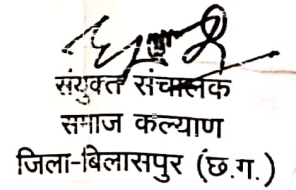 संयुक्त संचालक
समाज कल्याण
जिला-बिलासपुर (छ.ग.)